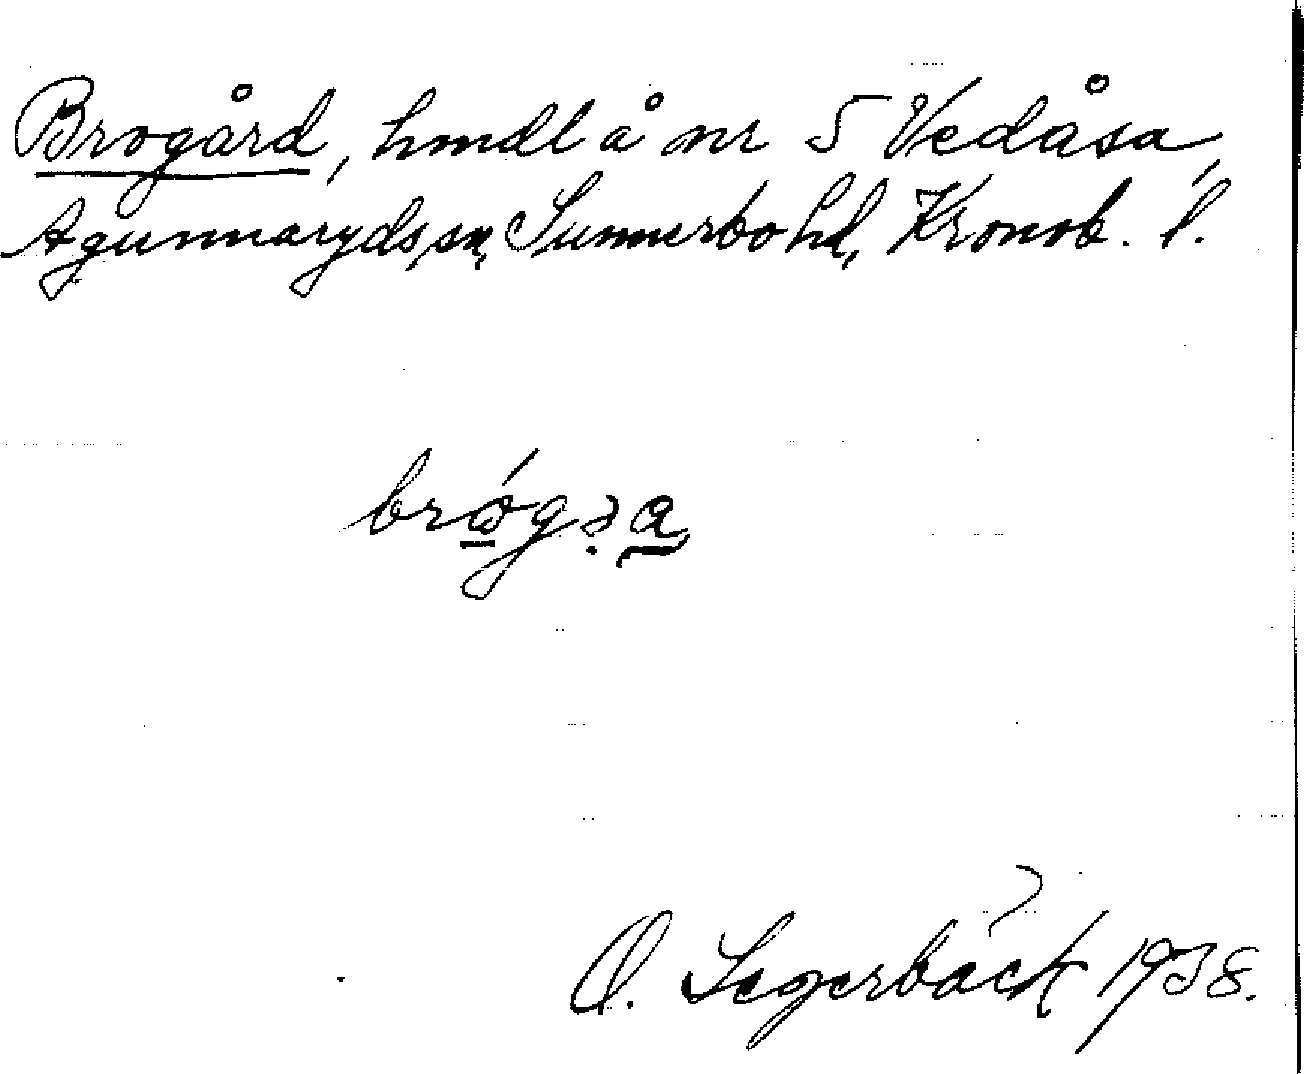 Brogård, hmdl å nr 5 Vedåsa,
Agunnaryds sn, Sunnerbo hd, Kronob. l.
O. Segerbäck 1938.